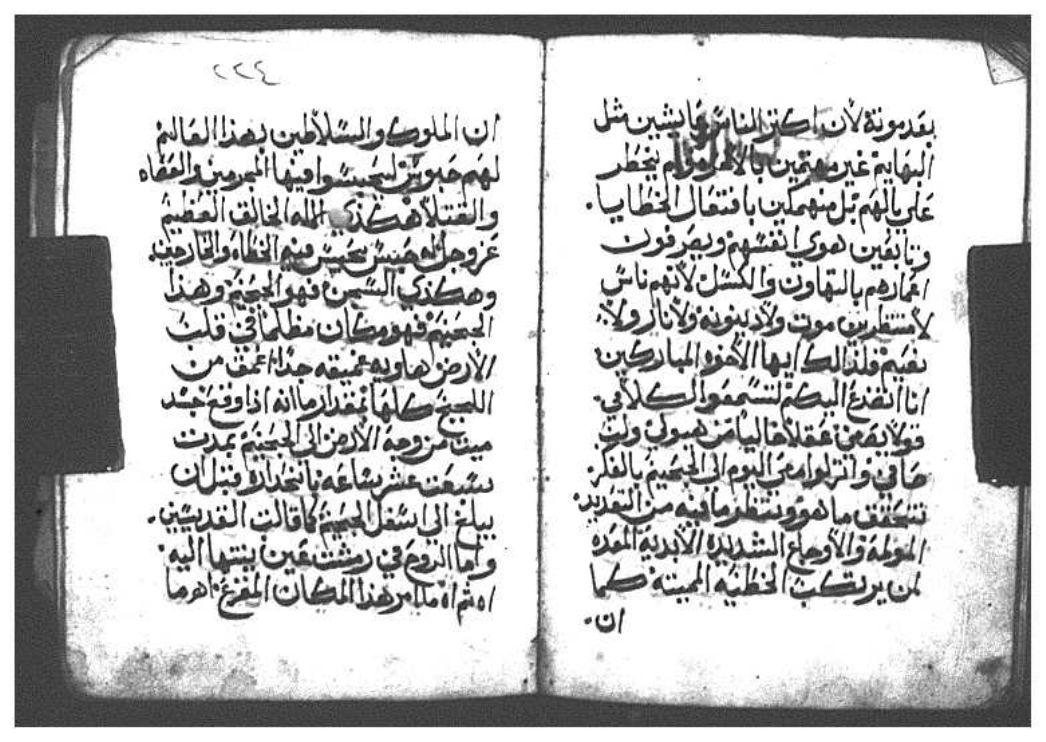 بعد مونة لأن اكتر الناس عايشين مثل
البهايم غير مهتمين بالاهر ولم يخطر
علي بالهم بل منهمكين بافتعال الخطايا.
وتابعين هوي انفسهم ويصرفون
اعمارهم بالتهاون والكسل لأنهم ناس
لأمنتظرين موت ولأدينونه ولأنار ولأ
نعيم فلذالك ايها الأخوه المباركين
انا اتضرع اليكم لتسمعوا لكلأمي.
عقلأ خاليا من ولب
صافي وانزلوا معي اليوم الي الجحيم بالفكر
نتحقق ما هو وننظر ما فيه من التعديد
المولمه والأوجاع الشديده الأبديه المعده
لمن يرتكب الخطيه المميته كما
ان.
٢٢٤
ان الملوك والسلأطين بهذا العالم
لهم حبوس ليحبسوا فيها المجرمين والعصاه
والقتلأ هكذي الله الخالق العظيم
عز وجل له حبس يحبس فيه الخطاه والخارجين
وهكذي السجن فهو الجحيم وهذا
الجحيم فهو مكان مظلم في قلب
الأرض هاويه عميقه جدا اعمق من
اللجج كلها بمقدار ما انه اذا وقع جسد
ميت من وجه الأرض الي الجحيم بمدت
تسعت عشر ساعه بانحداره قبل ان
يبلغ الي اسفل الجحيم كما قالت القديسين.
واما الروح في رمشت عين ينتها اليه
اه ثم اه ما امر هذا المكان المفزع